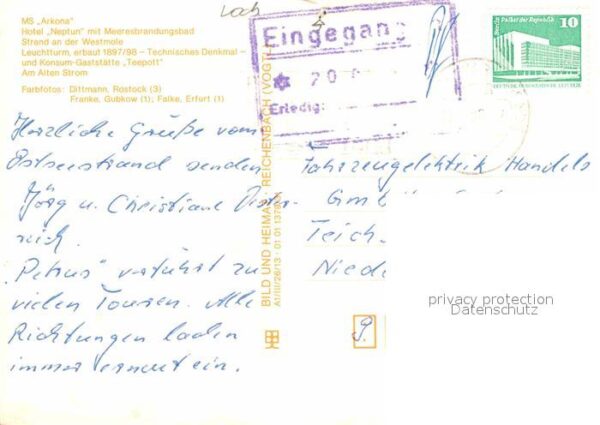 MS „Arkona"
Hotel „Neptun" mit Meeresbrandungsbad
Strand an der Westmole
Leuchtturm, erbaut 1897/98 – Technisches Denkmal –
und Konsum-Gaststätte „Teepott"
Am Alten Strom
Farbfotos: Dittmann, Rostock (3)
Franke, Gubkow (1); Falke, Erfurt (1)
Eingegang
20
Erledig:
Berlin Palast der Republik 10
DEUTSCHE DEMOKRATISCHE REPUBLIK
BILD UND HEIMAT · REICHENBACH (VOGTL
A1/III/26/13 01 01 13
Herzliche Grüße vom
Ostseestrand senden
Jörg u. Christiane
„Petrus" verführt zu
vielen Touren. Alle
Richtungen laden
immer erneut ein.
Fahrzeugelektrik Handels
Gmb
Teich
Niede
9.
privacy protection
Datenschutz